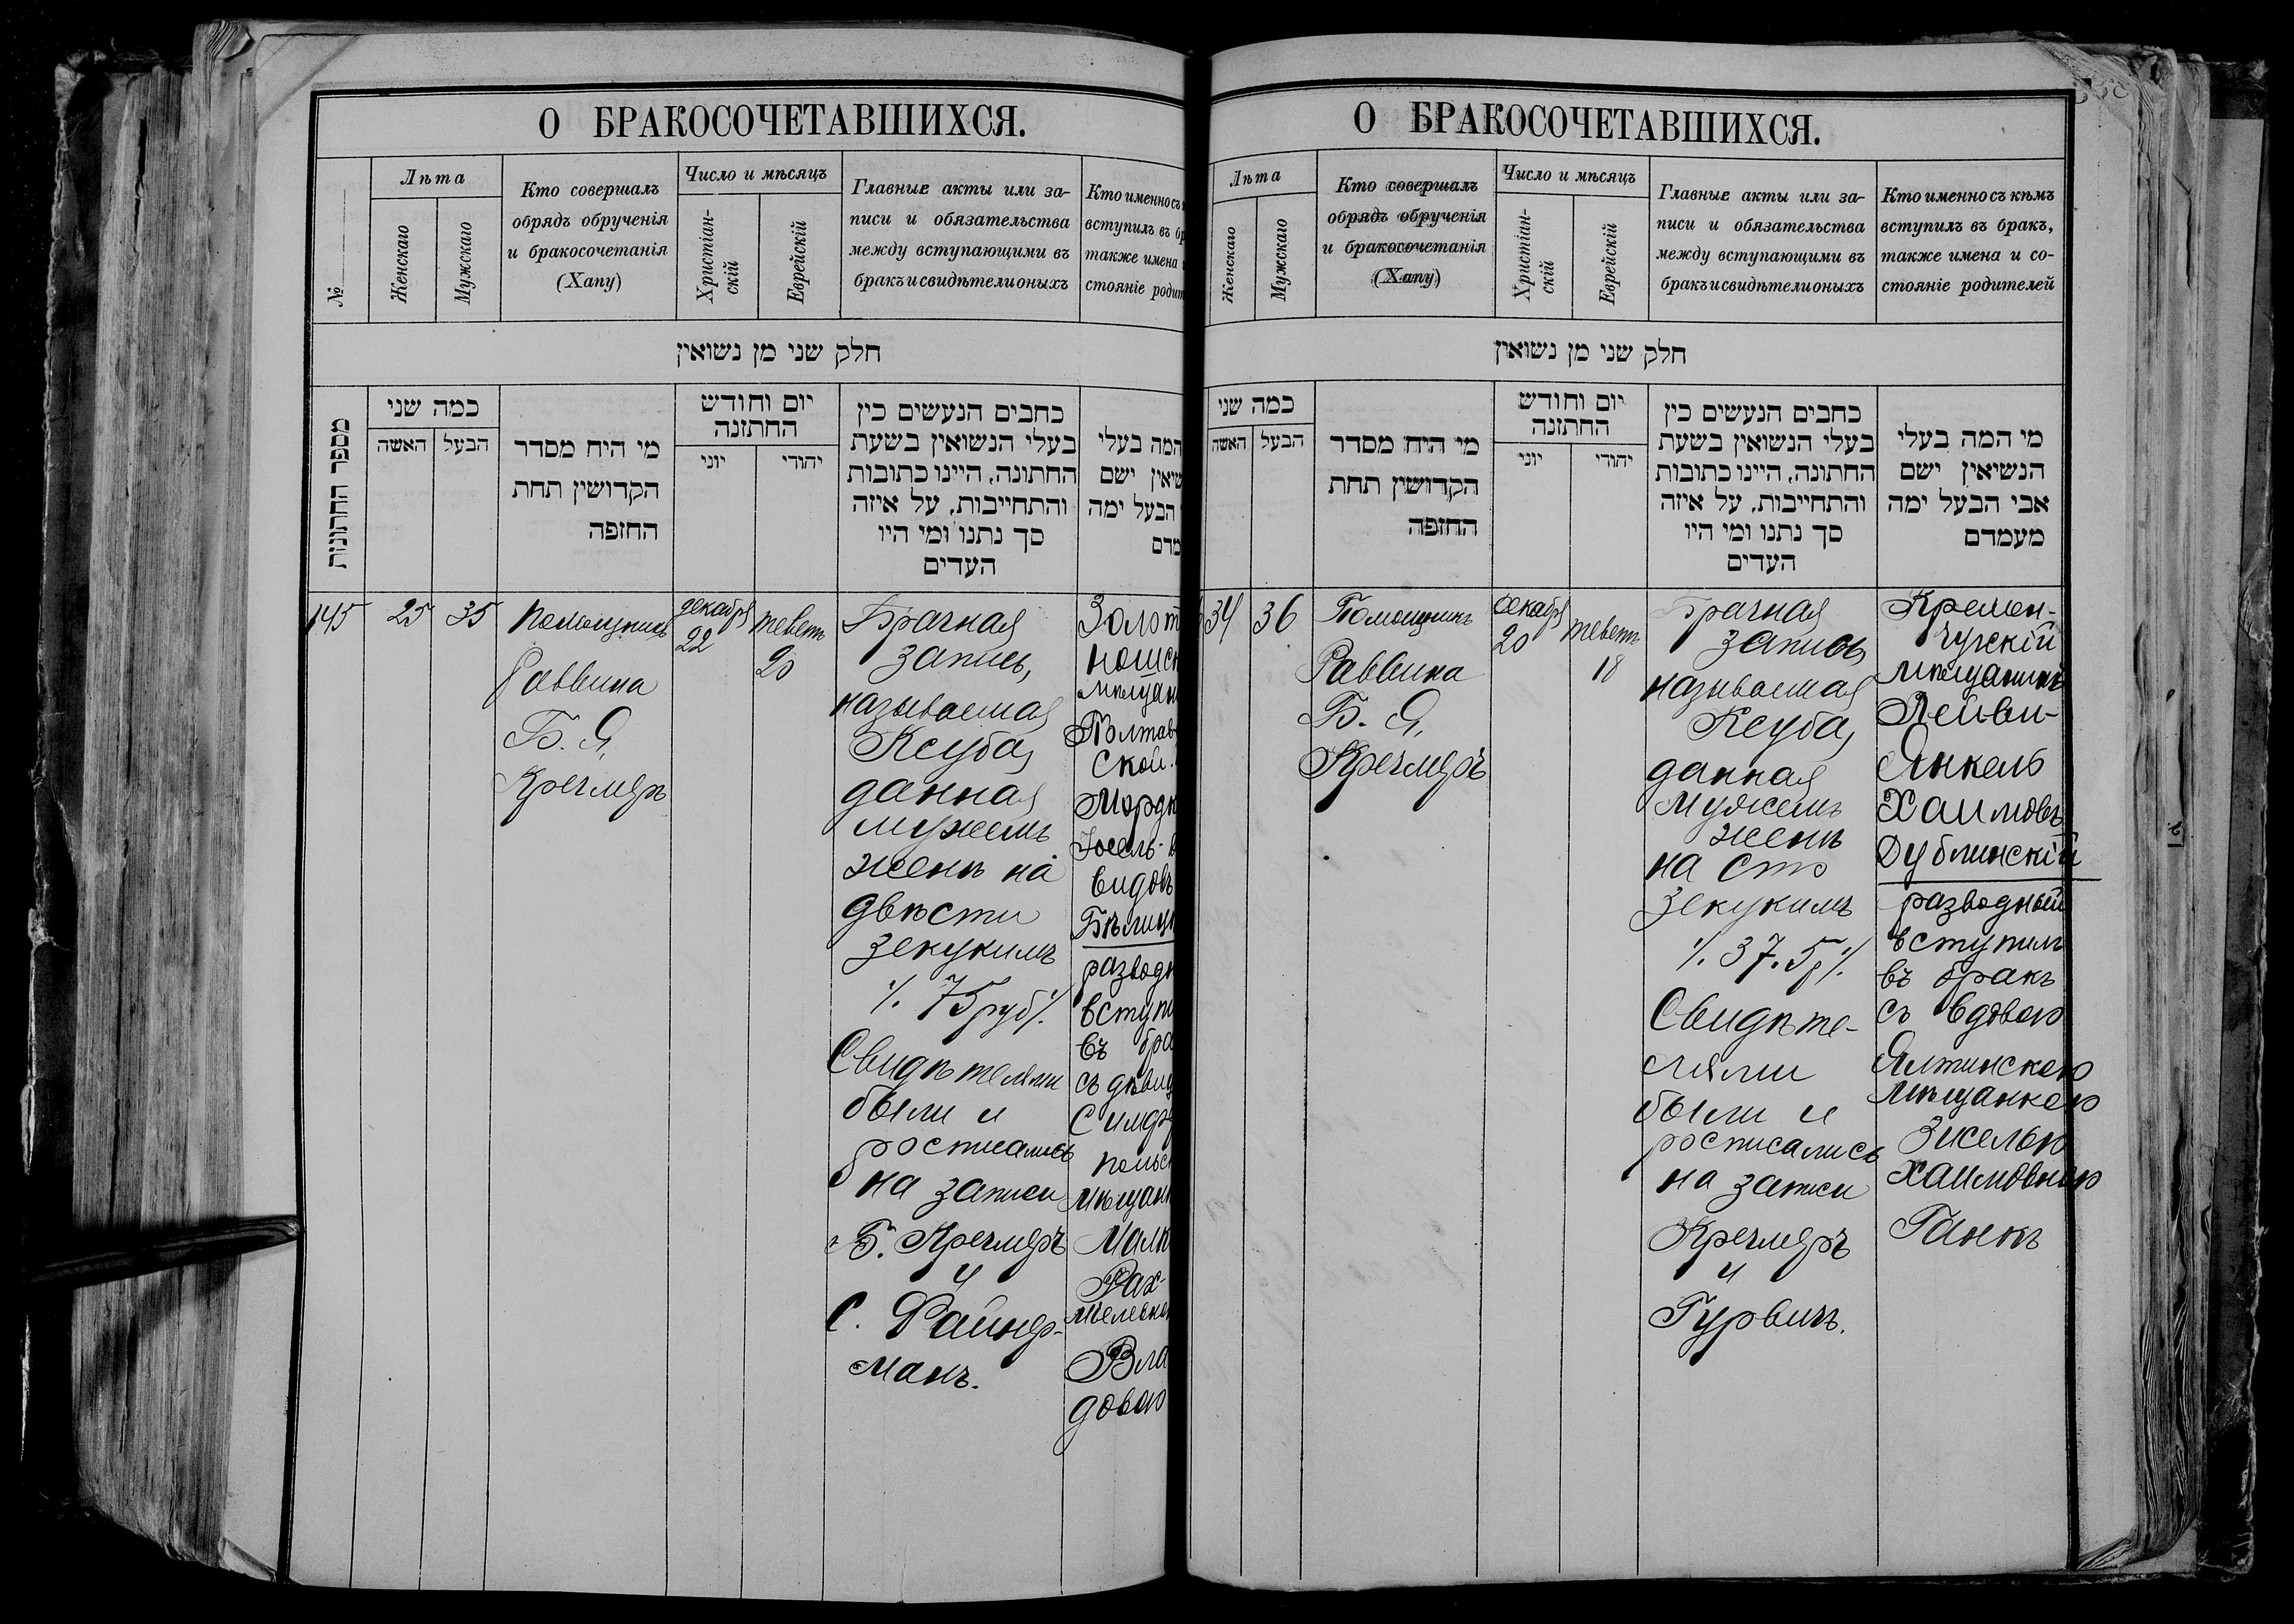 О БРАКОСОЧЕТАВШИХСЯ.
№
Лѣта
Женскаго
Мужскаго
Кто совершалъ
обрядъ обрученія
и бракосочетанія
(Хапу)
Число и мѣсяцъ
Христіан-
скій
Еврейскій
Главные акты или за-
писи и обязательства
между вступающими въ
бракъ и свидѣтели оныхъ
Кто именно съ
вступилъ въ бр
также имена
стояніе родит
חלק שני מן נשואין
מספר החתונות
כמה שני
האשה
הבעל
מי היח מסדר
הקדושין תחת
החזפה
יום וחודש
החתזנה
יוני
יהודי
כחבים הנעשים כין
בעלי הנשואין בשעת
החתונה, היינו כתובות
והתחייבות, על איזה
סך נתנו ומי היו
העדים
המה בעלי
שיאין ישם
הבעל ימה
מדם
145
25
35
Помощникъ
Раввина
Б. Я.
Кречмеръ
декабря
22
теветъ
20
Брачная
запись,
называемая
Ксуба,
данная
мужемъ
женѣ на
двѣсти
зекукимъ
·/. 75 руб/.
Свидѣтелями
были и
росписались
на записи
Б. Кречмеръ
и
С. Файнер-
манъ.
Золот
ношск
мѣщан
Полтав
ской
Мордк
Іосель-
видовъ
Бѣлицк
разводн
вступи
въ бра
съ дѣвиц
Симфе
польск
мѣщан
Малк
Рах-
мielевно
Вла
довою
О БРАКОСОЧЕТАВШИХСЯ.
Лѣта
Женскаго
Мужскаго
Кто совершалъ
обрядъ обрученія
и бракосочетанія
(Хапу)
Число и мѣсяцъ
Христіан-
скій
Еврейскій
Главные акты или за-
писи и обязательства
между вступающими въ
бракъ и свидѣтели оныхъ
Кто именно съ кѣмъ
вступилъ въ бракъ,
также имена и со-
стояніе родителей
חלק שני מן נשואין
כמה שני
האשה
הבעל
מי היח מסדר
הקדושין תחת
החזפה
יום וחודש
החתזנה
יוני
יהודי
כחבים הנעשים כין
בעלי הנשואין בשעת
החתונה, היינו כתובות
והתחייבות, על איזה
סך נתנו ומי היו
העדים
מי המה בעלי
הנשיאין ישם
אבי הבעל ימה
מעמדם
34
36
Помощникъ
Раввина
Б. Я.
Кречмеръ
декабря
20
теветъ
18
Брачная
запись
называемая
Ксуба,
данная
мужемъ
женѣ
на сто
зекукимъ
·/. 37.5 р/.
Свидѣте-
лями
были и
росписались
на записи
Кречмеръ
и
Гурвичъ.
Кремен-
чугскій
мѣщанинъ
Лейви-
Янкель
Хаимовъ
Дублинскій
разводный
вступилъ
въ бракъ
съ вдовою
Ялтинскою
мѣщанкою
Зиселью
Хаимовною
Ганкъ